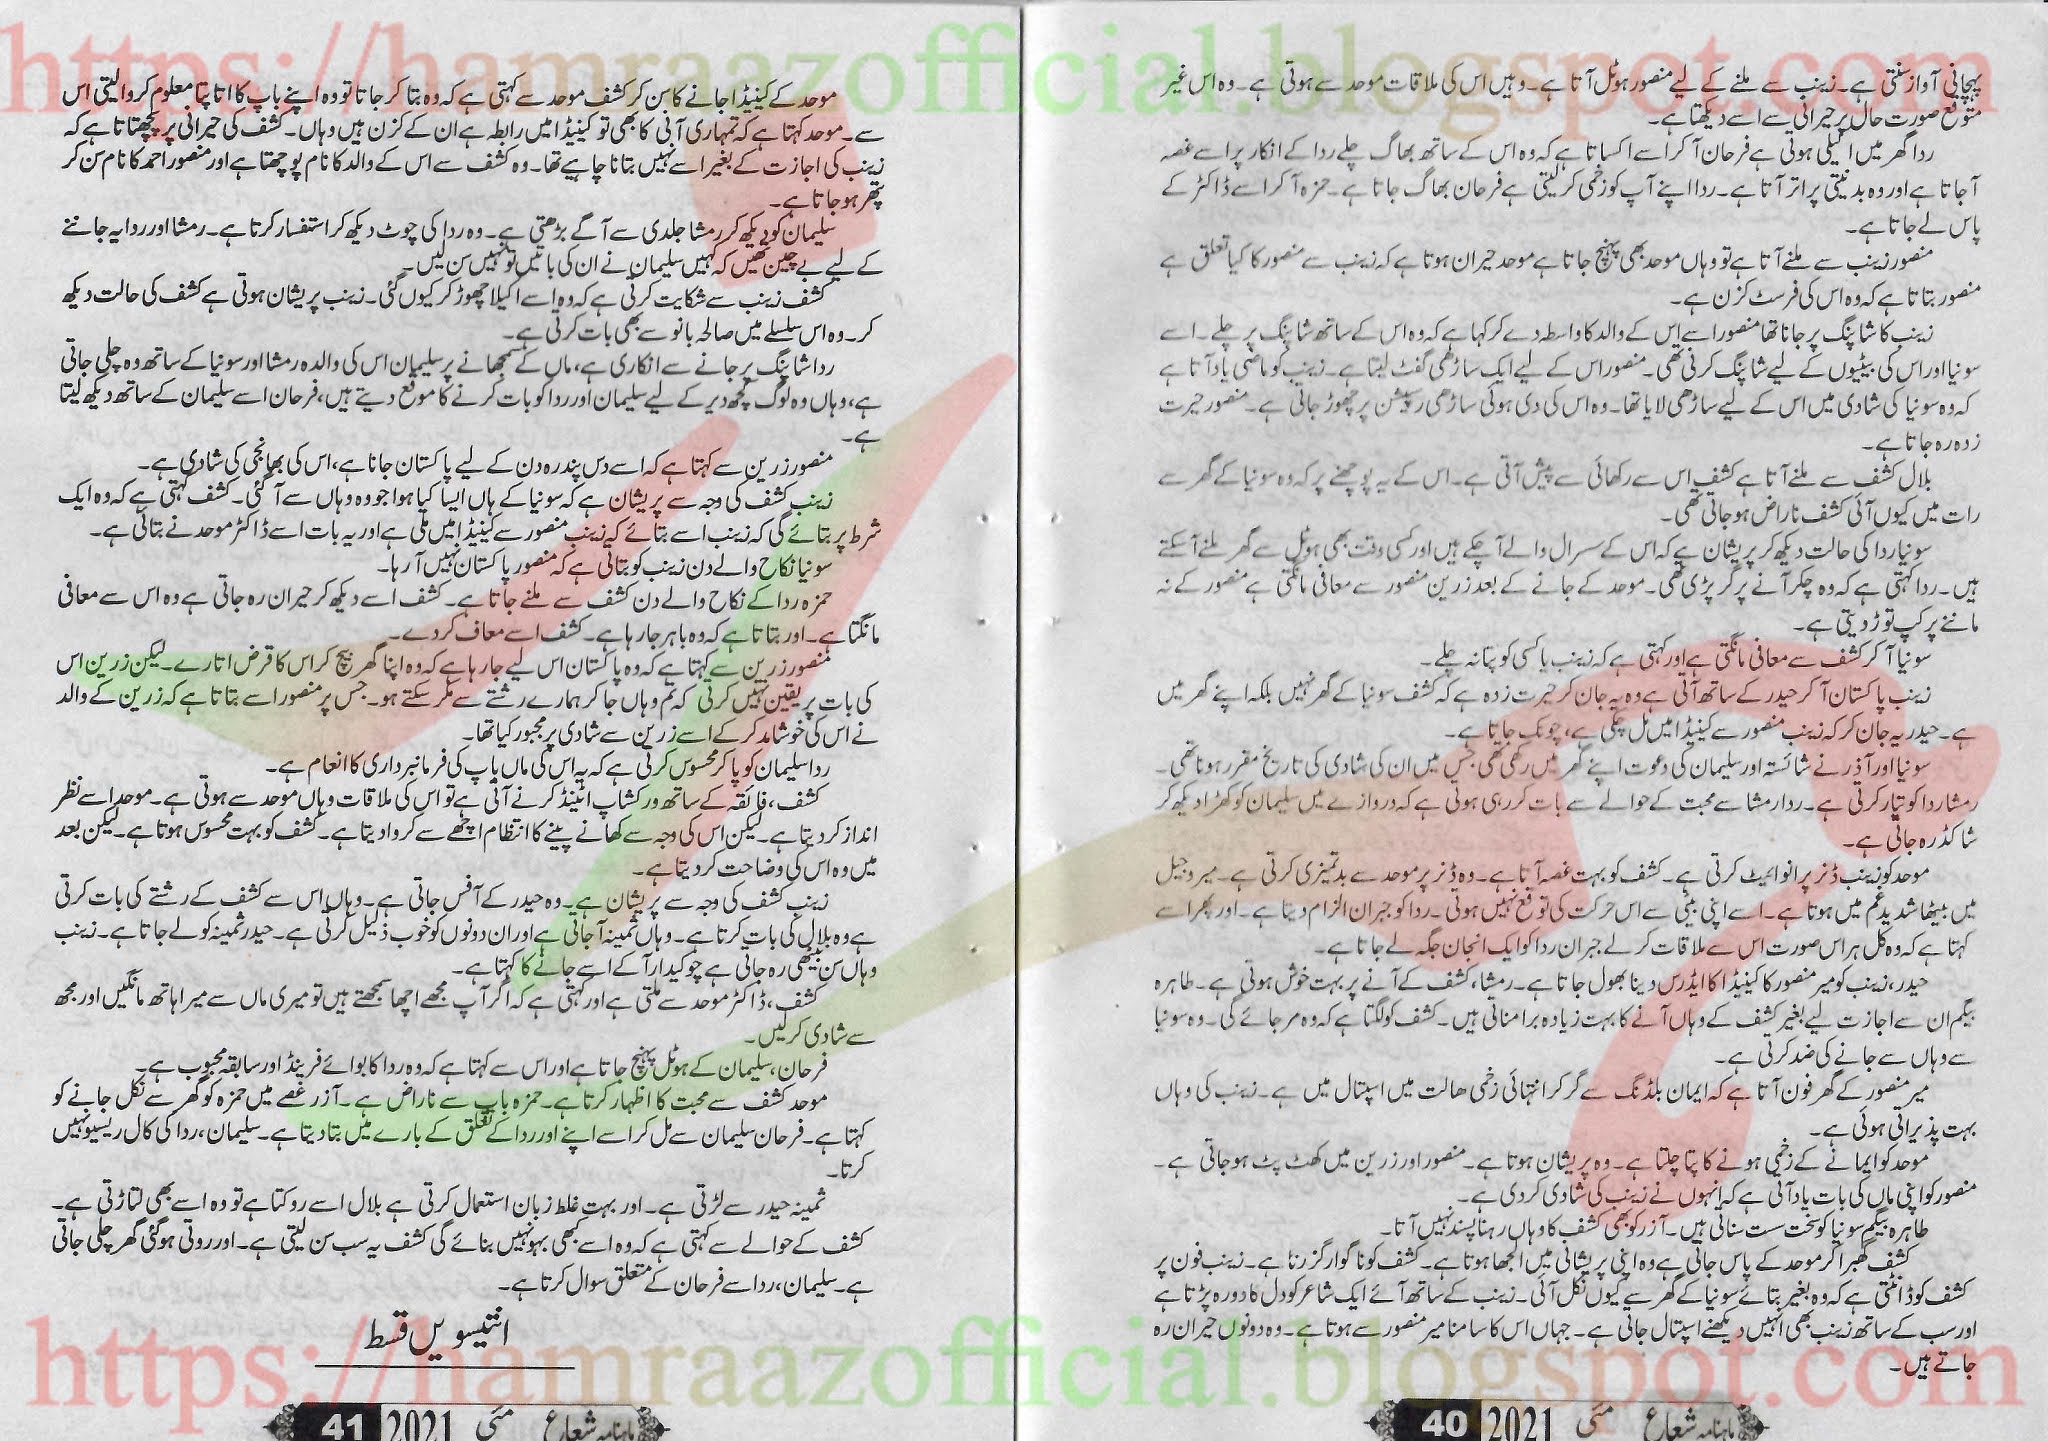 https://hamraazofficial.blogspot.com
پہچانی آواز سنتی ہے۔ زینب سے ملنے کے لیے منصور ہوٹل آتا ہے۔ وہیں اس کی ملاقات موحد سے ہوتی ہے۔ وہ اس غیر
متوقع صورت حال پر حیرانی سے اسے دیکھتا ہے۔
ردا گھر میں اکیلی ہوتی ہے فرحان آ کر اسے اکساتا ہے کہ وہ اس کے ساتھ بھاگ چلے ردا کے انکار پر اسے غصہ
آجاتا ہے اور وہ بدنیتی پر اتر آتا ہے۔ ردا اپنے آپ کو زخمی کر لیتی ہے فرحان بھاگ جاتا ہے۔ حمزہ آ کر اسے ڈاکٹر کے
پاس لے جاتا ہے۔
منصور زینب سے ملنے آتا ہے تو وہاں موحد بھی پہنچ جاتا ہے موحد حیران ہوتا ہے کہ زینب سے منصور کا کیا تعلق ہے
منصور بتاتا ہے کہ وہ اس کی فرسٹ کزن ہے۔
زینب کا شاپنگ پر جانا تھا منصور اسے اس کے والد کا واسطہ دے کر کہا ہے کہ وہ اس کے ساتھ شاپنگ پر چلے۔ اسے
سونیا اور اس کی بیٹیوں کے لیے شاپنگ کرنی تھی۔ منصور اس کے لیے ایک ساڑھی گفٹ لیتا ہے۔ زینب کو ماضی یاد آتا ہے
کہ وہ سونیا کی شادی میں اس کے لیے ساڑھی لایا تھا۔ وہ اس کی دی ہوئی ساڑھی رسپشن پر چھوڑ جاتی ہے۔ منصور حیرت
زدہ رہ جاتا ہے۔
بلال کشف سے ملنے آتا ہے کشف اس سے رکھائی سے پیش آتی ہے۔ اس کے یہ پوچھنے پر کہ وہ سونیا کے گھر سے
رات میں کیوں آئی کشف ناراض ہو جاتی تھی۔
سونیا ردا کی حالت دیکھ کر پریشان ہے کہ اس کے سسرال والے آ چکے ہیں اور کسی وقت بھی ہوٹل سے گھر ملنے آسکتے
ہیں۔ ردا کہتی ہے کہ وہ چکر آنے پر گر پڑی تھی۔ موحد کے جانے کے بعد زرین منصور سے معافی مانگتی ہے منصور کے نہ
ماننے پر کپ توڑ دیتی ہے۔
سونیا آ کر کشف سے معافی مانگتی ہے اور کہتی ہے کہ زینب یا کسی کو پتا نہ چلے۔
زینب پاکستان آ کر حیدر کے ساتھ آتی ہے وہ یہ جان کر حیرت زدہ ہے کہ کشف سونیا کے گھر نہیں بلکہ اپنے گھر میں
ہے۔ حیدر یہ جان کر کہ زینب منصور سے کینیڈا میں مل چکی ہے، چونک جاتا ہے۔
سونیا اور آذر نے شائستہ اور سلیمان کی دعوت اپنے گھر میں رکھی تھی جس میں ان کی شادی کی تاریخ مقرر ہونا تھی۔
رمشا ردا کو تیار کرتی ہے۔ ردا رمشا سے محبت کے حوالے سے بات کر رہی ہوتی ہے کہ دروازے میں سلیمان کو کھڑا دیکھ کر
شاکڈ رہ جاتی ہے۔
موحد کو زینب ڈنر پر انوائیٹ کرتی ہے۔ کشف کو بہت غصہ آتا ہے۔ وہ ڈنر پر موحد سے بدتمیزی کرتی ہے۔ میر وجیل
میں بیٹھا شدید غم میں ہوتا ہے۔ اسے اپنی بیٹی سے اس حرکت کی توقع نہیں ہوتی۔ ردا کو جبران الزام دیتا ہے۔ اور پھر اسے
کہتا ہے کہ وہ کل ہر اس صورت اس سے ملاقات کر لے جبران ردا کو ایک انجان جگہ لے جاتا ہے۔
حیدر، زینب کو میر منصور کا کینیڈا کا ایڈرس دینا بھول جاتا ہے۔ رمشا، کشف کے آنے پر بہت خوش ہوتی ہے۔ طاہرہ
بیگم ان سے اجازت لیے بغیر کشف کے وہاں آنے کا بہت زیادہ برا مناتی ہیں۔ کشف کو لگتا ہے کہ وہ مر جائے گی۔ وہ سونیا
سے وہاں سے جانے کی ضد کرتی ہے۔
میر منصور کے گھر فون آتا ہے کہ ایمان بلڈنگ سے گر کر انتہائی زخمی حالت میں اسپتال میں ہے۔ زینب کی وہاں
بہت پذیرائی ہوئی ہے۔
موحد کو ایمانے کے زخمی ہونے کا پتا چلتا ہے۔ وہ پریشان ہوتا ہے۔ منصور اور زرین میں کھٹ پٹ ہو جاتی ہے۔
منصور کو اپنی ماں کی بات یاد آتی ہے کہ انہوں نے زینب کی شادی کر دی ہے۔
طاہرہ بیگم سونیا کو سخت ست سناتی ہیں۔ آزر کو بھی کشف کا وہاں رہنا پسند نہیں آتا۔
کشف گھبرا کر موحد کے پاس جاتی ہے وہ اپنی پریشانی میں الجھا ہوتا ہے۔ کشف کو ناگوار گزرتا ہے۔ زینب فون پر
کشف کو ڈانٹتی ہے کہ وہ بغیر بتائے سونیا کے گھر سے کیوں نکل آئی۔ زینب کے ساتھ آئے ایک شاعر کو دل کا دورہ پڑتا ہے
اور سب کے ساتھ زینب بھی انہیں دیکھنے اسپتال جاتی ہے۔ جہاں اس کا سامنا میر منصور سے ہوتا ہے۔ وہ دونوں حیران رہ
جاتے ہیں۔
ماہنامہ شعاع مئی 2021 40
موحد کے کینیڈا جانے کا سن کر کشف موحد سے کہتی ہے کہ وہ بتا کر جاتا تو وہ اپنے باپ کا اتا پتا معلوم کروا لیتی اس
سے۔ موحد کہتا ہے کہ تمہاری آنی کا بھی تو کینیڈا میں رابطہ ہے ان کے کزن ہیں وہاں۔ کشف کی حیرانی پر پچھتاتا ہے کہ
زینب کی اجازت کے بغیر اسے نہیں بتانا چاہیے تھا۔ وہ کشف سے اس کے والد کا نام پوچھتا ہے اور منصور احمد کا نام سن کر
پتھر ہو جاتا ہے۔
سلیمان کو دیکھ کر رمشا جلدی سے آگے بڑھتی ہے۔ وہ ردا کی چوٹ دیکھ کر استفسار کرتا ہے۔ رمشا اور ردا یہ جاننے
کے لیے بے چین تھیں کہ کہیں سلیمان نے ان کی باتیں تو نہیں سن لیں۔
کشف زینب سے شکایت کرتی ہے کہ وہ اسے اکیلا چھوڑ کر کیوں گئی۔ زینب پریشان ہوتی ہے کشف کی حالت دیکھ
کر۔ وہ اس سلسلے میں صالحہ بانو سے بھی بات کرتی ہے۔
ردا شاپنگ پر جانے سے انکاری ہے، ماں کے سمجھانے پر سلیمان اس کی والدہ رمشا اور سونیا کے ساتھ وہ چلی جاتی
ہے، وہاں وہ لوگ کچھ دیر کے لیے سلیمان اور ردا کو بات کرنے کا موقع دیتے ہیں، فرحان اسے سلیمان کے ساتھ دیکھ لیتا
ہے۔
منصور زرین سے کہتا ہے کہ اسے دس پندرہ دن کے لیے پاکستان جانا ہے، اس کی بھانجی کی شادی ہے۔
زینب کشف کی وجہ سے پریشان ہے کہ سونیا کے ہاں ایسا کیا ہوا جو وہ وہاں سے آگئی۔ کشف کہتی ہے کہ وہ ایک
شرط پر بتائے گی کہ زینب اسے بتائے کہ زینب منصور سے کینیڈا میں ملی ہے اور یہ بات اسے ڈاکٹر موحد نے بتائی ہے۔
سونیا نکاح والے دن زینب کو بتاتی ہے کہ منصور پاکستان نہیں آ رہا۔
حمزہ ردا کے نکاح والے دن کشف سے ملنے جاتا ہے۔ کشف اسے دیکھ کر حیران رہ جاتی ہے وہ اس سے معافی
مانگتا ہے۔ اور بتاتا ہے کہ وہ باہر جا رہا ہے۔ کشف اسے معاف کر دے۔
منصور زرین سے کہتا ہے کہ وہ پاکستان اس لیے جا رہا ہے کہ وہ اپنا گھر بیچ کر اس کا قرض اتارے۔ لیکن زرین اس
کی بات پر یقین نہیں کرتی کہ تم وہاں جا کر ہمارے رشتے سے مکر سکتے ہو۔ جس پر منصور اسے بتاتا ہے کہ زرین کے والد
نے اس کی خوشامد کر کے اسے زرین سے شادی پر مجبور کیا تھا۔
ردا سلیمان کو پا کر محسوس کرتی ہے کہ یہ اس کی ماں باپ کی فرمانبرداری کا انعام ہے۔
کشف، فائقہ کے ساتھ ورکشاپ اٹینڈ کرنے آتی ہے تو اس کی ملاقات وہاں موحد سے ہوتی ہے۔ موحد اسے نظر
انداز کر دیتا ہے۔ لیکن اس کی وجہ سے کھانے پینے کا انتظام اچھے سے کروا دیتا ہے۔ کشف کو بہت محسوس ہوتا ہے۔ لیکن بعد
میں وہ اس کی وضاحت کر دیتا ہے۔
زینب کشف کی وجہ سے پریشان ہے۔ وہ حیدر کے آفس جاتی ہے۔ وہاں اس سے کشف کے رشتے کی بات کرتی
ہے وہ بلال کی بات کرتا ہے۔ وہاں ثمینہ آجاتی ہے اور ان دونوں کو خوب ذلیل کرتی ہے۔ حیدر ثمینہ کو لے جاتا ہے۔ زینب
وہاں سن بیٹھی رہ جاتی ہے چوکیدار آ کے اسے جانے کا کہتا ہے۔
کشف، ڈاکٹر موحد سے ملتی ہے اور کہتی ہے کہ اگر آپ مجھے اچھا سمجھتے ہیں تو میری ماں سے میرا ہاتھ مانگیں اور مجھ
سے شادی کر لیں۔
فرحان، سلیمان کے ہوٹل پہنچ جاتا ہے اور اس سے کہتا ہے کہ وہ ردا کا بوائے فرینڈ اور سابقہ محبوب ہے۔
موحد کشف سے محبت کا اظہار کرتا ہے۔ حمزہ باپ سے ناراض ہے۔ آزر غصے میں حمزہ کو گھر سے نکل جانے کو
کہتا ہے۔ فرحان سلیمان سے مل کر اسے اپنے اور ردا کے تعلق کے بارے میں بتا دیتا ہے۔ سلیمان، ردا کی کال ریسیو نہیں
کرتا۔
ثمینہ حیدر سے لڑتی ہے۔ اور بہت غلط زبان استعمال کرتی ہے بلال اسے روکتا ہے تو وہ اسے بھی لتاڑتی ہے۔
کشف کے حوالے سے کہتی ہے کہ وہ اسے کبھی بہو نہیں بنائے گی کشف یہ سب سن لیتی ہے۔ اور روتی ہوئی گھر چلی جاتی
ہے۔ سلیمان، ردا سے فرحان کے متعلق سوال کرتا ہے۔
انتیسویں قسط
https://hamraazofficial.blogspot.com
ماہنامہ شعاع مئی 2021 41